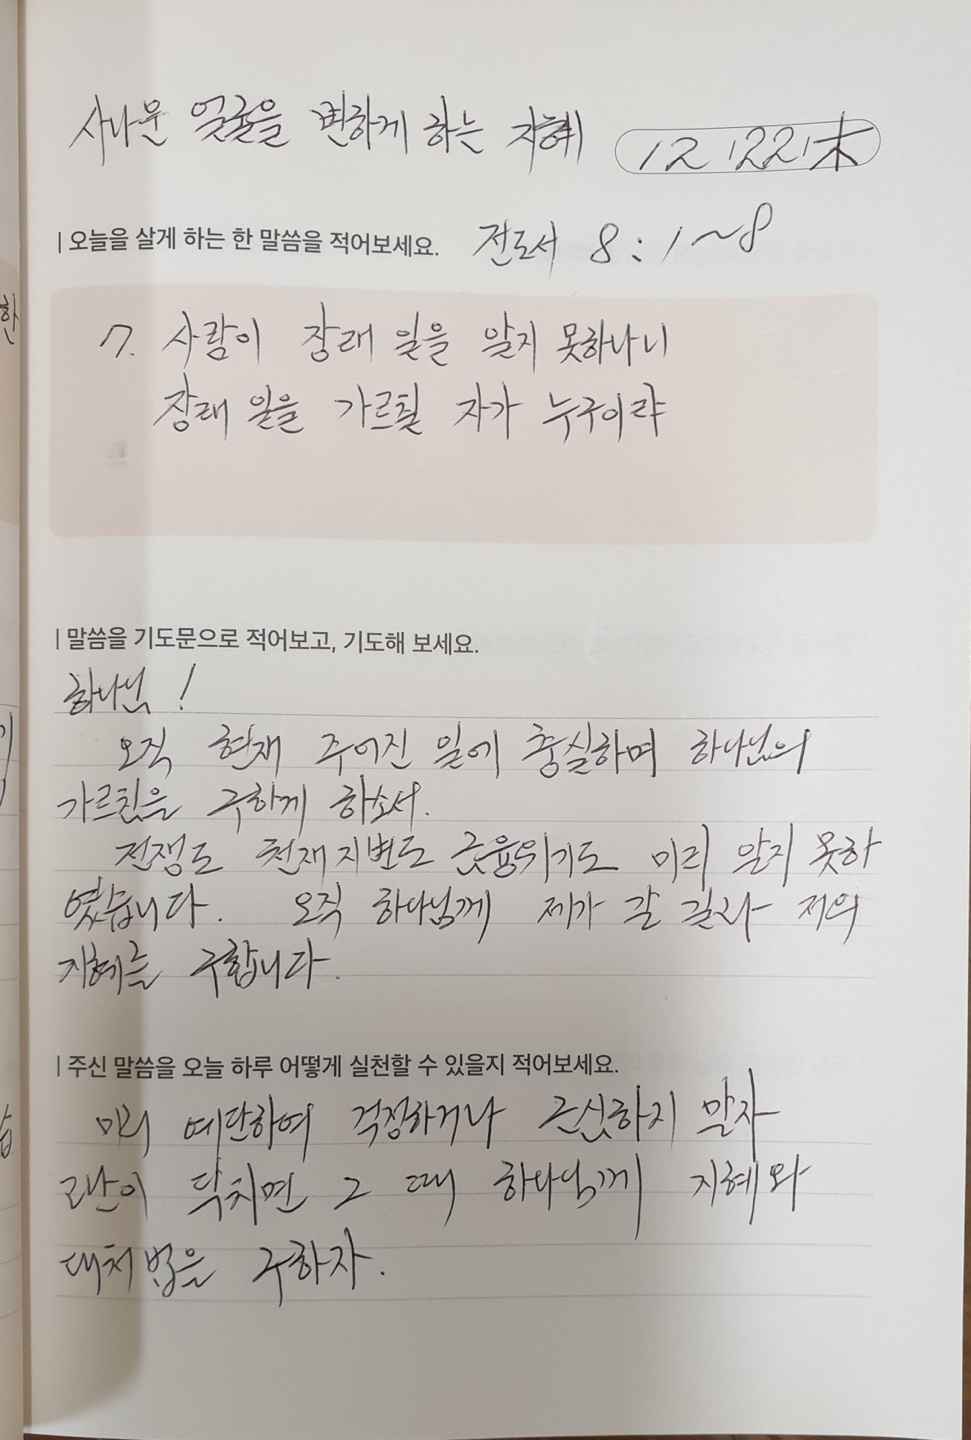 사나운 얼굴을 변하게 하는 지혜 12/22/木
| 오늘을 살게 하는 한 말씀을 적어보세요. 전도서 8:1~8
7. 사람이 장래 일을 알지 못하나니
장래 일을 가르칠 자가 누구이랴
| 말씀을 기도문으로 적어보고, 기도해 보세요.
하나님!
오직 현재 주어진 일에 충실하며 하나님의
가르침을 구하게 하소서.
전쟁도 천재지변도 금융위기도 미리 알지 못하
였습니다. 오직 하나님께 제가 갈 길과 저의
지혜를 구합니다.
| 주신 말씀을 오늘 하루 어떻게 실천할 수 있을지 적어보세요.
미리 예단하여 걱정하거나 근심하지 말자
고난이 닥치면 그 때 하나님께 지혜와
대처법을 구하자.